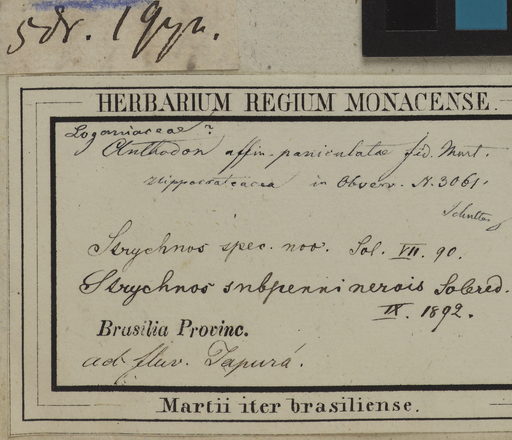 5dr. 19yn.
HERBARIUM REGIUM MONACENSE.
Loganiaceae?
Anthodon affin. paniculatae fid. Mart.
Hippocrateacea in Observ. N. 3061.
Strychnos spec. nov. Sol. VII. 90.
Strychnos subpenninervis Solered.
IX. 1892.
Brasilia Provinc.
ad fluv. Japurá.
Martii iter brasiliense.